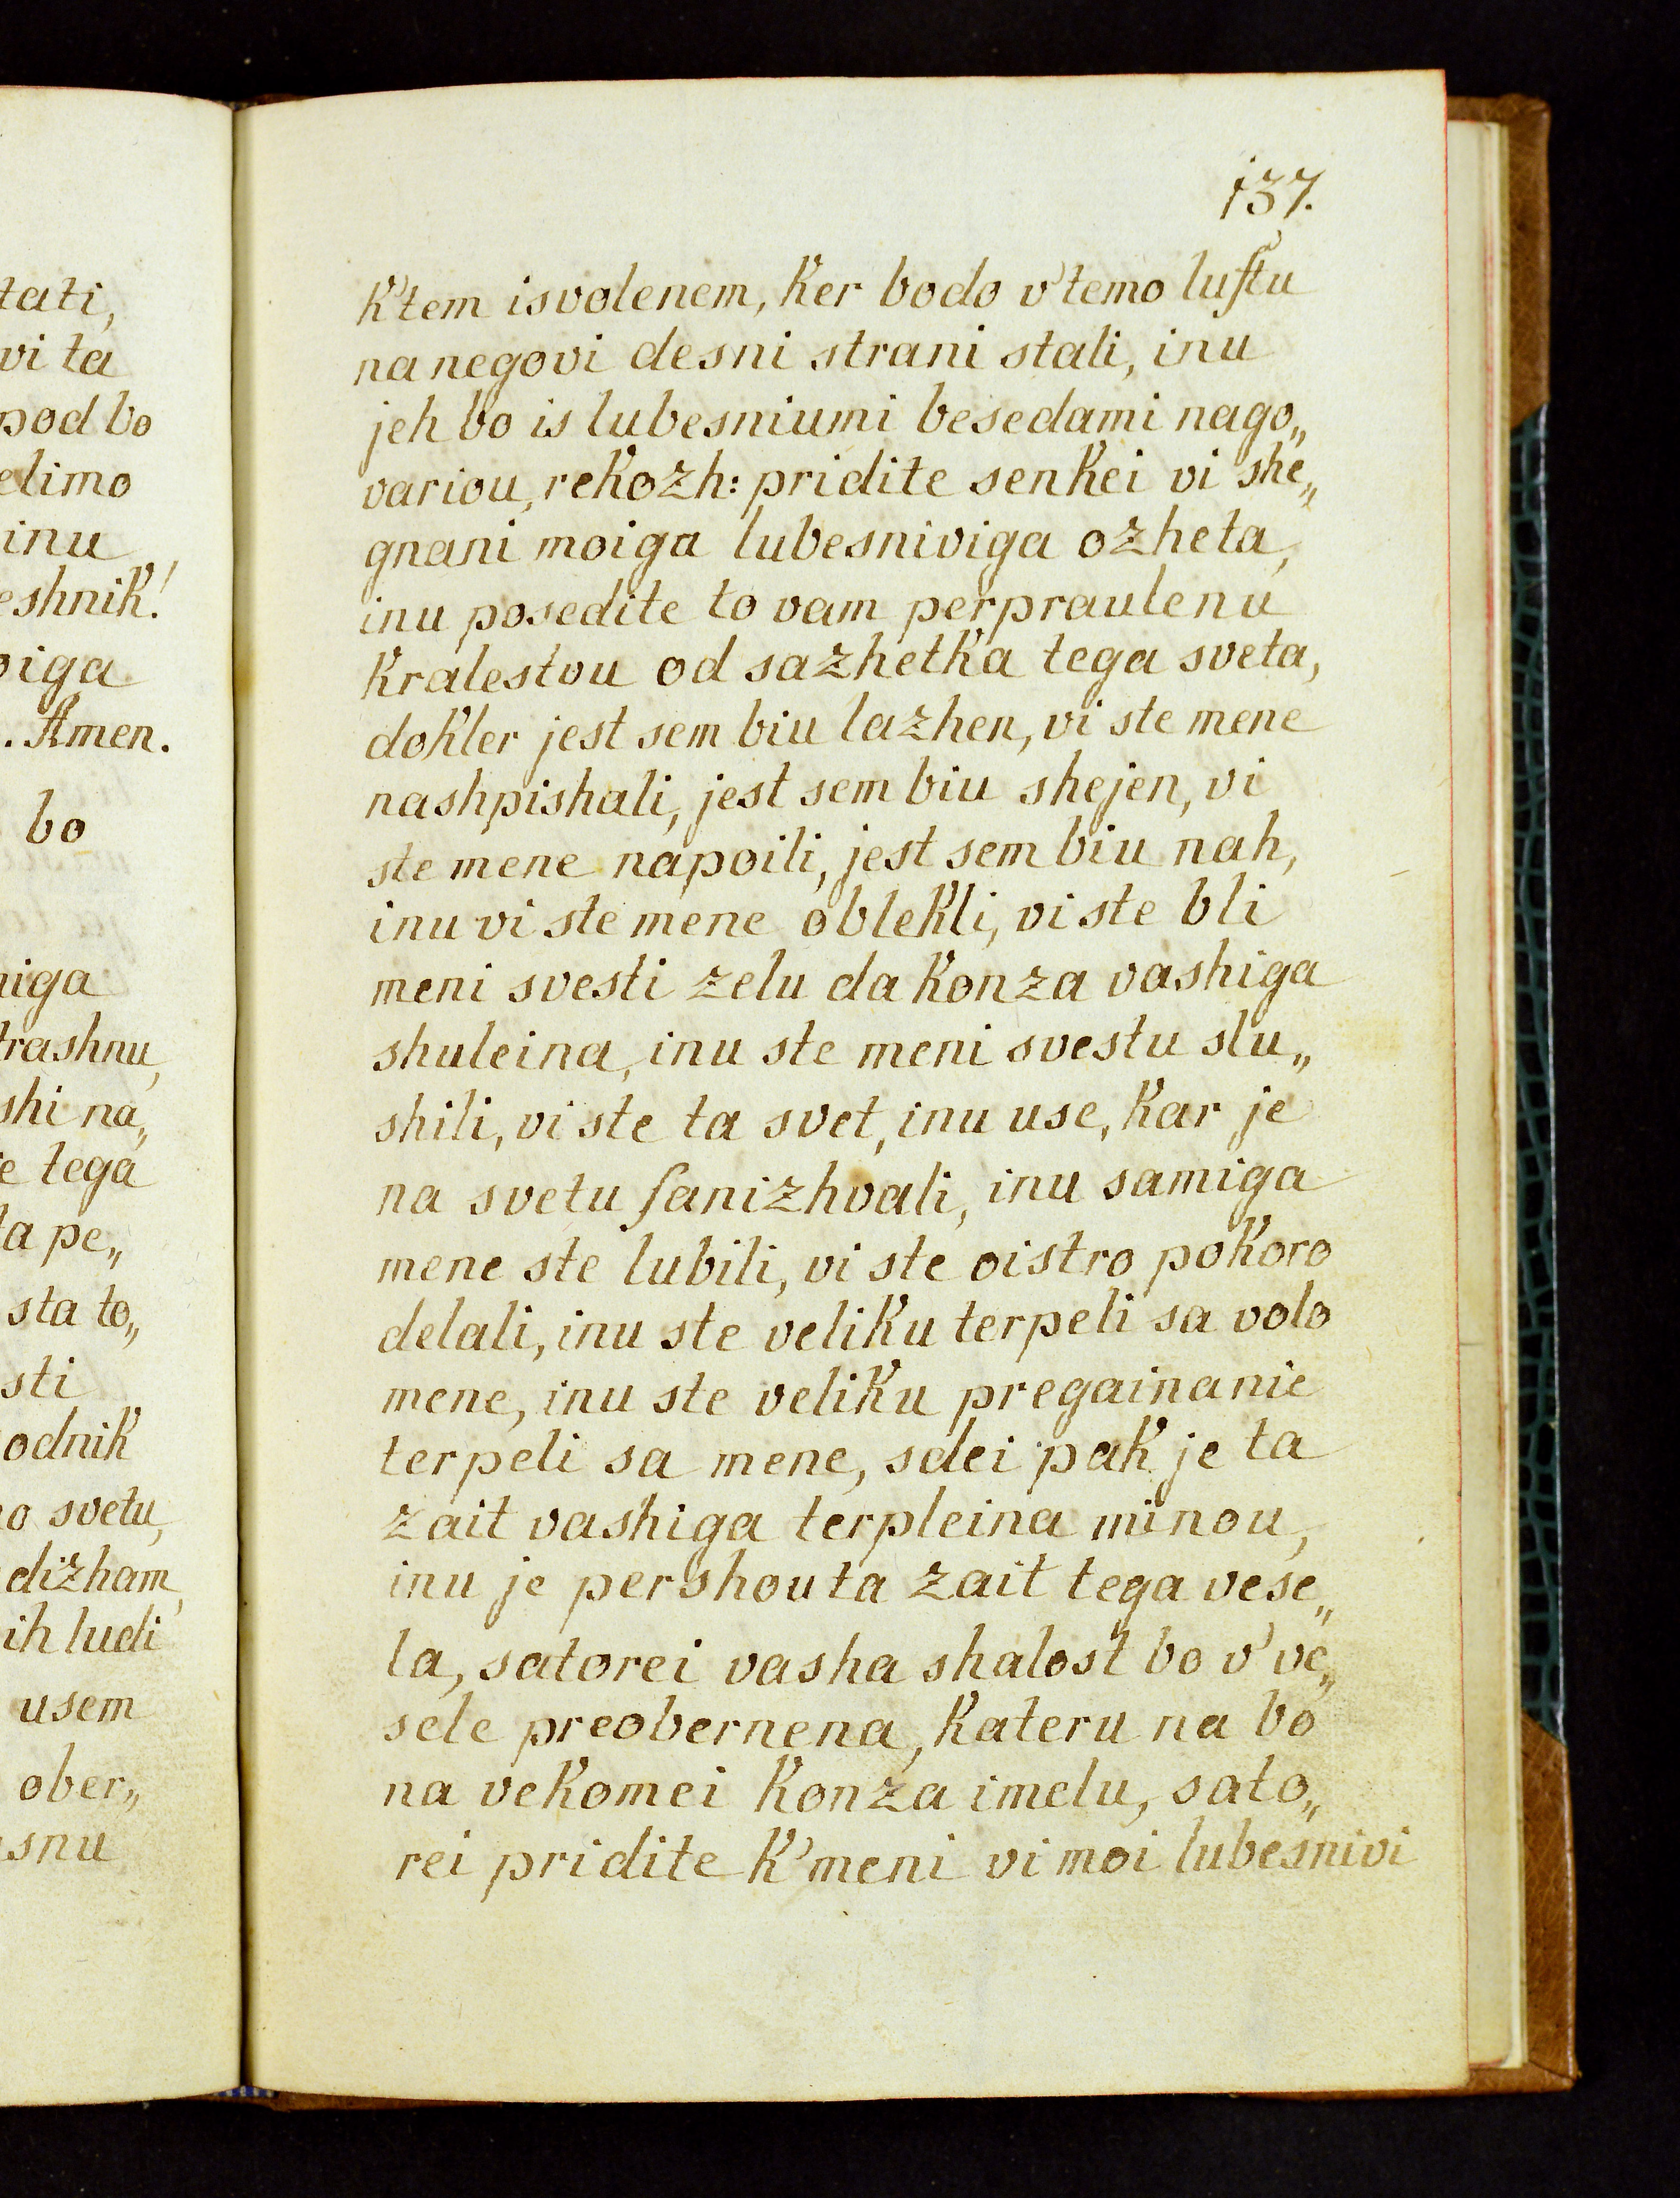 tati,
vi ta
pod bo
elimo
inu
eshnik!
oiga
. Amen.
bo
niga
trashnu,
shi na„
e tega
ta pe„
sta to„
sti
odnik
o svetu,
dizham,
ih ludi
usem
ober„
snu
137.
k'tem isvolenem, ker bodo v'temo luftu
na negovi desni strani stali, inu
jeh bo is lubesniumi besedami nago„
variou, rekozh: pridite senkei vi she„
gnani moiga lubesniviga ozheta,
inu posedite to vam perpraulenu
kralestvu od sazhetka tega sveta,
dokler jest sem biu lazhen, vi ste mene
nashpishali, jest sem biu shejen, vi
ste mene napoili, jest sem biu nah,
inu vi ste mene oblekli, vi ste bli
meni svesti zelu da konza vashiga
shuleina, inu ste meni svestu slu„
shili, vi ste ta svet, inu use, kar je
na svetu ſanizhvali, inu samiga
mene ste lubili, vi ste oistro pokoro
delali, inu ste veliku terpeli sa volo
mene, inu ste veliku pregainanie
terpeli sa mene, sdei pak je ta
zait vashiga terpleina minou,
inu je pershou ta zait tega vese„
la, satorei vasha shalost bo v' ve„
sele preobernena, kateru na bo
na vekomei konza imelu, sato„
rei pridite k'meni vi moi lubesnivi